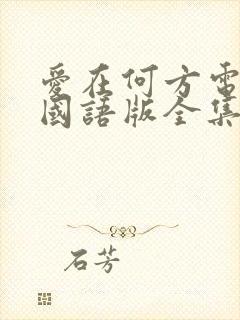 愛在何方電
國語版全集
石芳